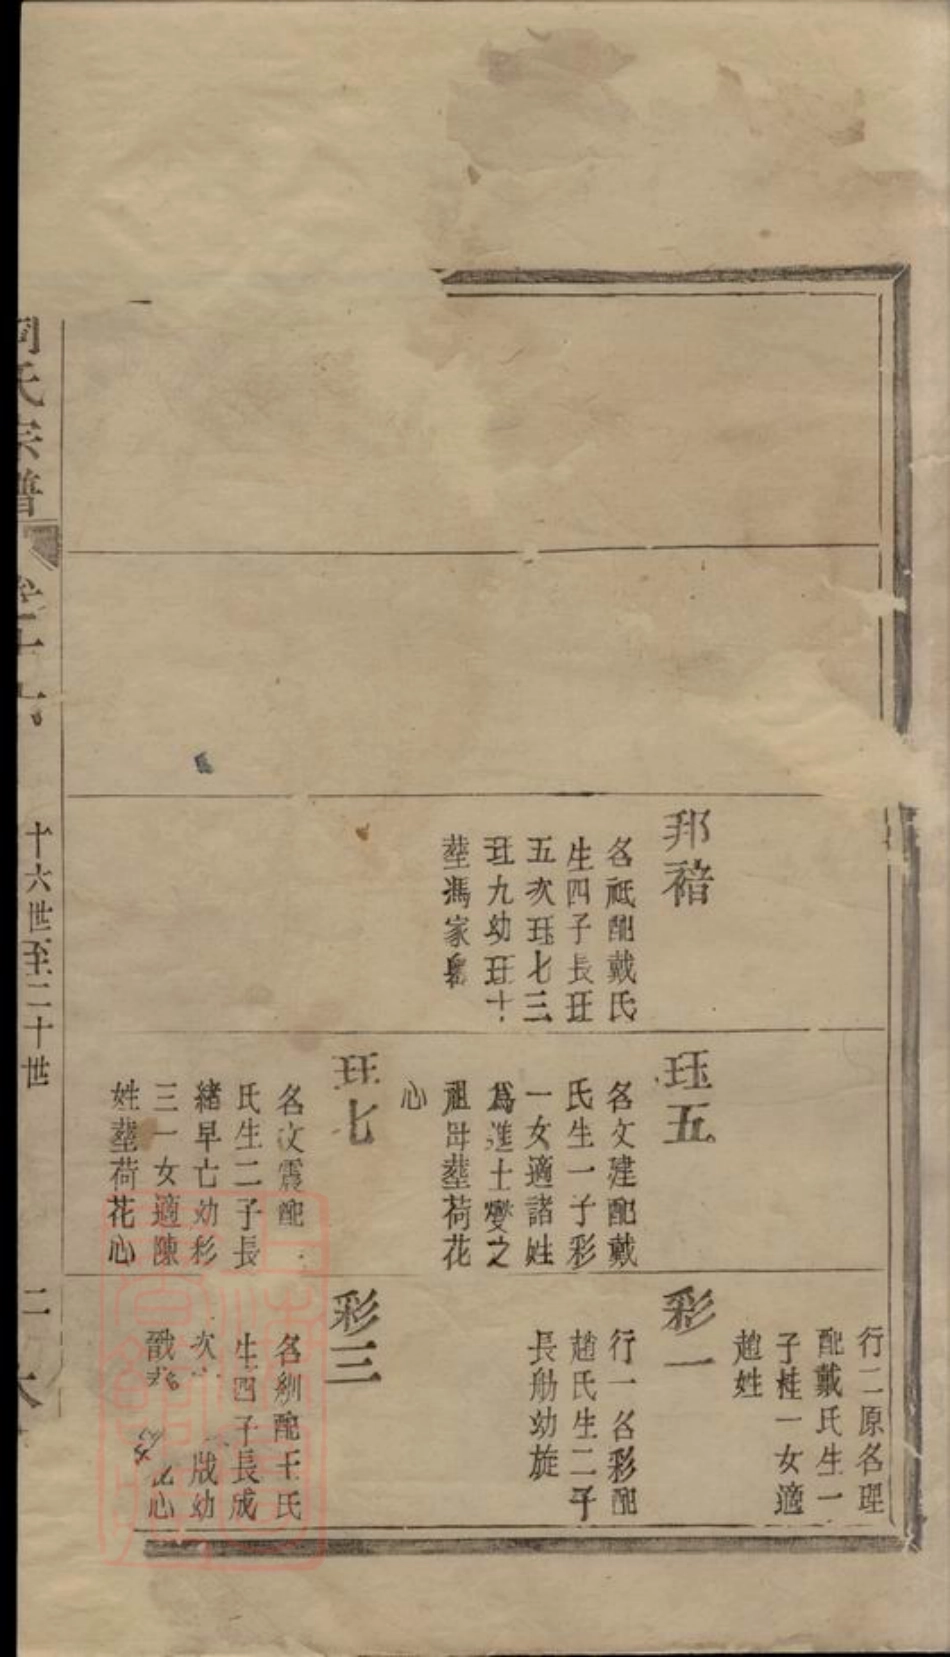 氏宗譜
十六世至二十世
邦䄄
名祗配戴氏
生四子長玨
五次玨七三
玨九幼玨十
塟馮家𡺸
玨五
名文建配戴
氏生一子彩
一女適諸姓
爲進士變之
祖母塟荷花
心
玨七
名文震配
氏生二子長
緒早亡幼彩
三一女適陳
姓塟荷花心
行二原名理
配戴氏生一
子桂一女適
趙姓
彩一
行一名彩配
趙氏生二子
長勛幼旋
彩三
名紃配王氏
生四子長成
次 戚幼
戩 心